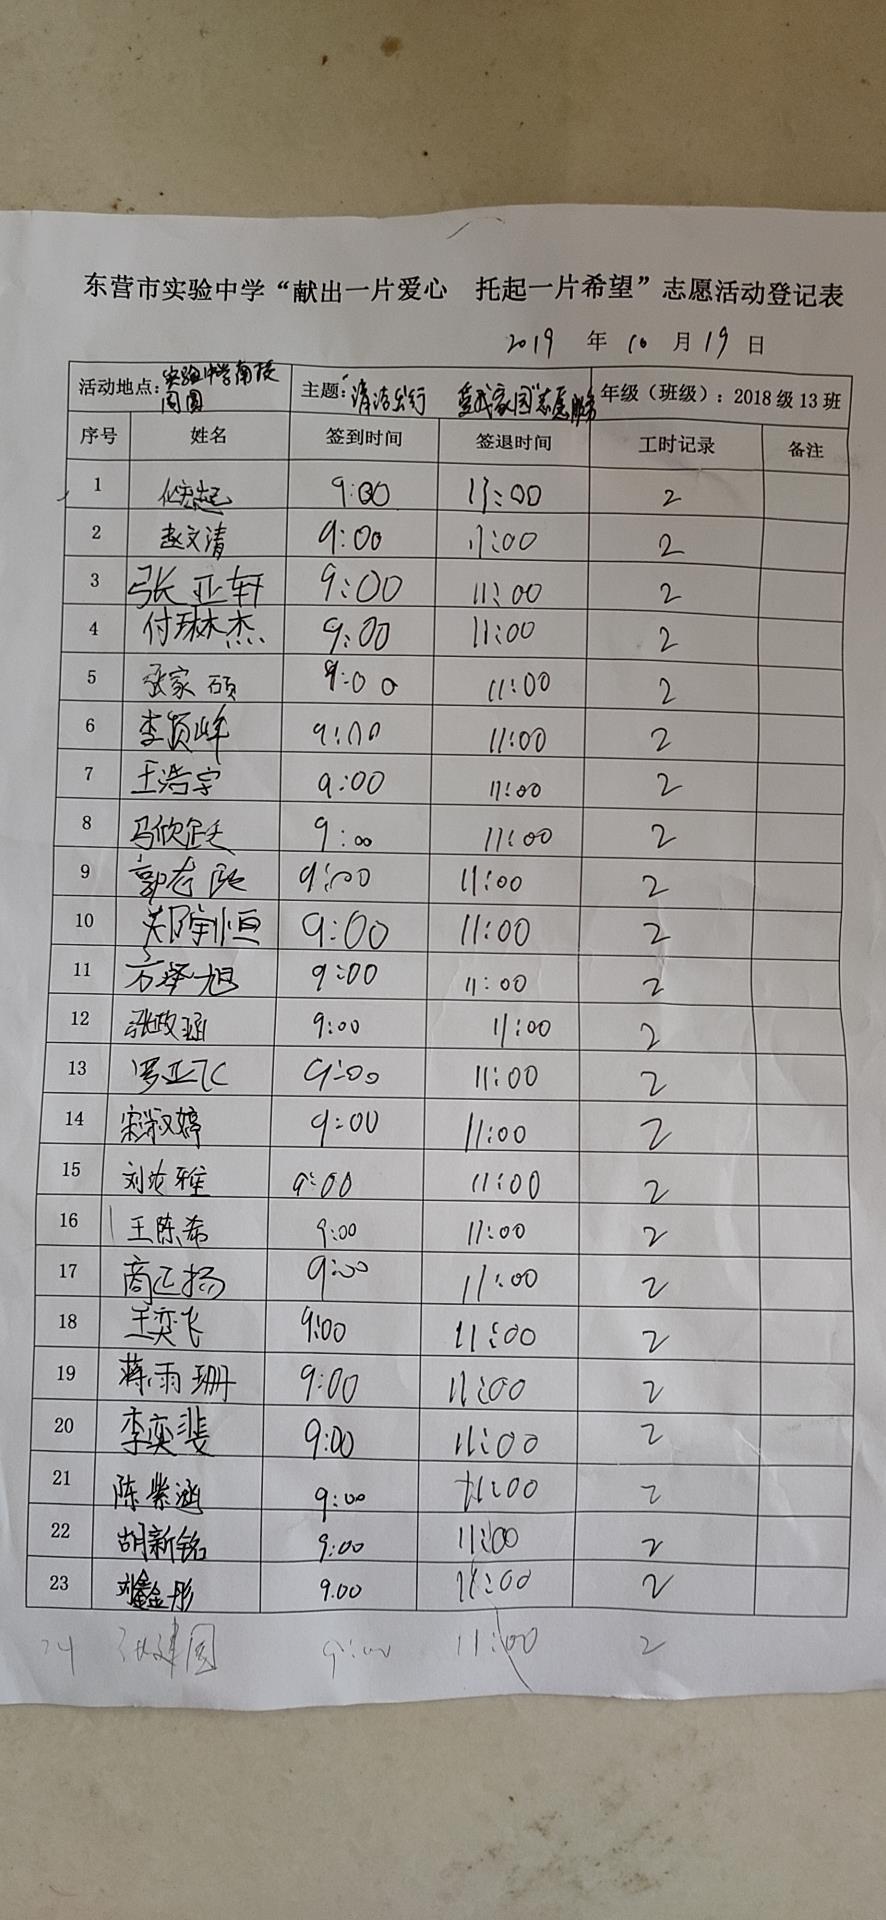 东营市实验中学“献出一片爱心 托起一片希望”志愿活动登记表
2019 年 10 月 19 日
活动地点：实验中学南校周围 主题：“清洁出行 爱我家园”志愿服务 年级（班级）：2018 级 13 班
序号 姓名 签到时间 签退时间 工时记录 备注
1 9:00 11:00 2
2 赵文清 9:00 11:00 2
3 张亚轩 9:00 11:00 2
4 付琳杰 9:00 11:00 2
5 张家硕 9:00 11:00 2
6 李颂峰 9:00 11:00 2
7 王浩宇 9:00 11:00 2
8 马欣廷 9:00 11:00 2
9 郭志 9:00 11:00 2
10 恒 9:00 11:00 2
11 方泽旭 9:00 11:00 2
12 张政涵 9:00 11:00 2
13 罗亚飞 9:00 11:00 2
14 宋淑婷 9:00 11:00 2
15 刘雅 9:00 11:00 2
16 王陈希 9:00 11:00 2
17 商正扬 9:00 11:00 2
18 王奕飞 9:00 11:00 2
19 蒋雨珊 9:00 11:00 2
20 李奕斐 9:00 11:00 2
21 陈紫涵 9:00 11:00 2
22 胡新铭 9:00 11:00 2
23 刘鑫彤 9:00 11:00 2
24 张建国 9:00 11:00 2